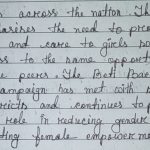 s across the nation. Th
asises the need to pro
and care to girls so
ss to the same opport
e peers. The Beti Ba
ampaign has met with s
ricts and continues to p
role in reducing gender
ting female empowerme